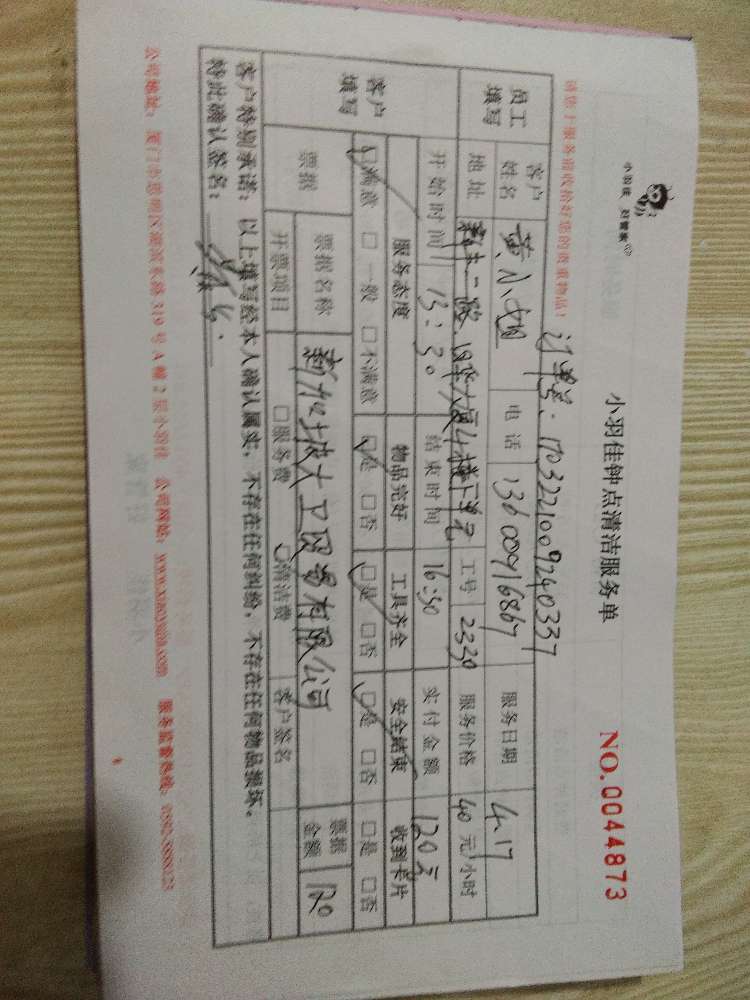 小羽佳 家政
小羽佳钟点清洁服务单
NO.0044873
请您于服务前收拾好您的贵重物品!
订单号:
员工填写
客户姓名 黄小姐 电话 13600916867 服务日期 4.17
地址 工号 2330 服务价格 40元/小时
开始时间 13:30 结束时间 16:30 实付金额 120元
客户填写
服务态度 物品完好 工具齐全 安全结束 收到卡片
☑满意 □一般 □不满意 ☑是 □否 ☑是 □否 ☑是 □否 □是 □否
票据 票据名称 新加坡大卫贸易有限公司 票据金额 120
开票项目 □服务费 ☑清洁费 客户签名
客户特别承诺:以上填写经本人确认属实,不存在任何纠纷,不存在任何物品损坏。
特此确认签名:
公司地址:厦门市思明区 319号A幢2层小羽佳 公司网站:www.xiaoyujia.com 服务监督热线: